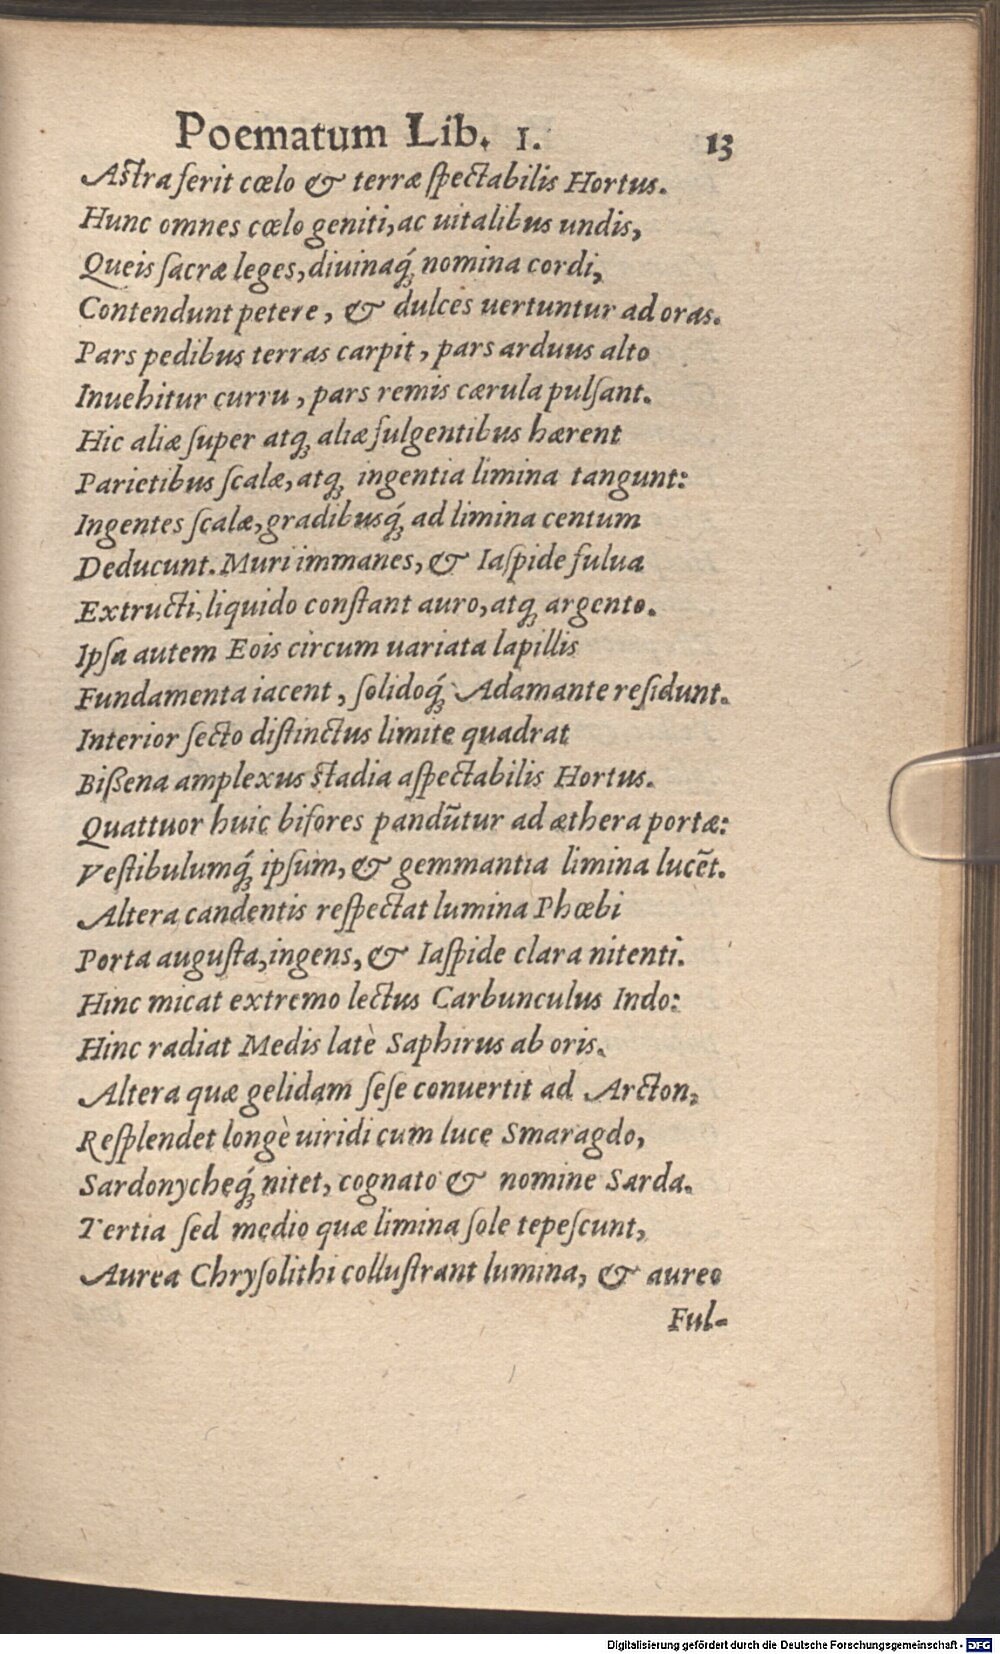 Poematum Lib. 1. 13
Astra ferit cœlo & terræ spectabilis Hortus.
Hunc omnes cœlo geniti, ac uitalibus undis,
Queis sacræ leges, diuinaq́; nomina cordi,
Contendunt petere, & dulces uertuntur ad oras.
Pars pedibus terras carpit, pars arduus alto
Inuehitur curru, pars remis cærula pulsant.
Hic aliæ super atq; aliæ fulgentibus hærent
Parietibus scalæ, atq; ingentia limina tangunt:
Ingentes scalæ, gradibusq́; ad limina centum
Deducunt. Muri immanes, & Iaspide fulua
Extructi, liquido constant auro, atq; argento.
Ipsa autem Eois circum uariata lapillis
Fundamenta iacent, solidoq́; Adamante residunt.
Interior secto distinctus limite quadrat
Bißena amplexus stadia aspectabilis Hortus.
Quattuor huic bifores pandūtur ad æthera portæ:
Vestibulumq́; ipsum, & gemmantia limina lucēt.
Altera candentis respectat lumina Phœbi
Porta augusta, ingens, & Iaspide clara nitenti.
Hinc micat extremo lectus Carbunculus Indo:
Hinc radiat Medis latè Saphirus ab oris.
Altera quæ gelidam sese conuertit ad Arcton,
Resplendet longè uiridi cum luce Smaragdo,
Sardonycheq́; nitet, cognato & nomine Sarda.
Tertia sed medio quæ limina sole tepescunt,
Aurea Chrysolithi collustrant lumina, & aureo
Ful-
Digitalisierung gefördert durch die Deutsche Forschungsgemeinschaft - DFG